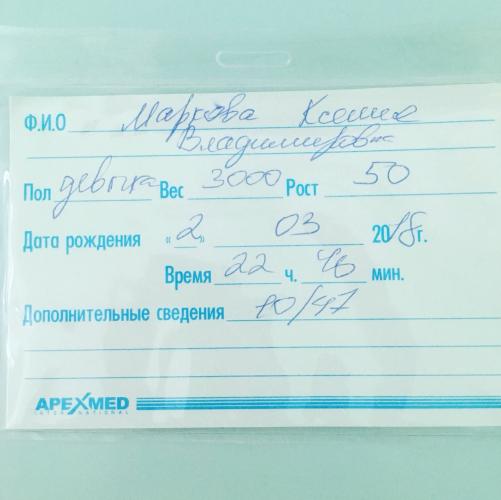 Ф.И.О Маркова Ксения
Владимировна
Пол девочка Вес 3000 Рост 50
Дата рождения «2» 03 2018г.
Время 22 ч. 46 мин.
Дополнительные сведения 10/47
APEXMED
INTERNATIONAL